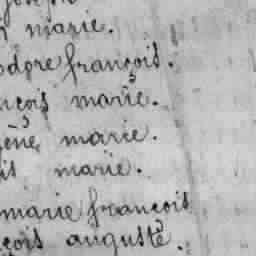 marie.
odore françois.
nçois marie.
ène marie.
is marie.
marie françois
çois auguste.